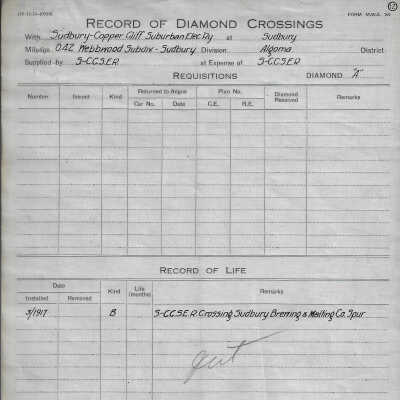 FORM M.W.&. 54
12
RECORD OF DIAMOND CROSSINGS
With Sudbury-Copper Cliff Suburban Elec Ry at Sudbury
Mileage 0.42 Webbwood Subdiv - Sudbury Division Algoma District
Supplied by S-C.C.S.E.R. at Expense of S-C.C.S.E.R.
REQUISITIONS DIAMOND "A"
Number Issued Kind Returned to Angus Plan No. Diamond Received Remarks
Car No. Date C.E. R.E.
RECORD OF LIFE
Date Kind Life (months) Remarks
Installed Removed
5/1917 B S-C.C.S.E.R. Crossing Sudbury Brewing & Malting Co. Spur